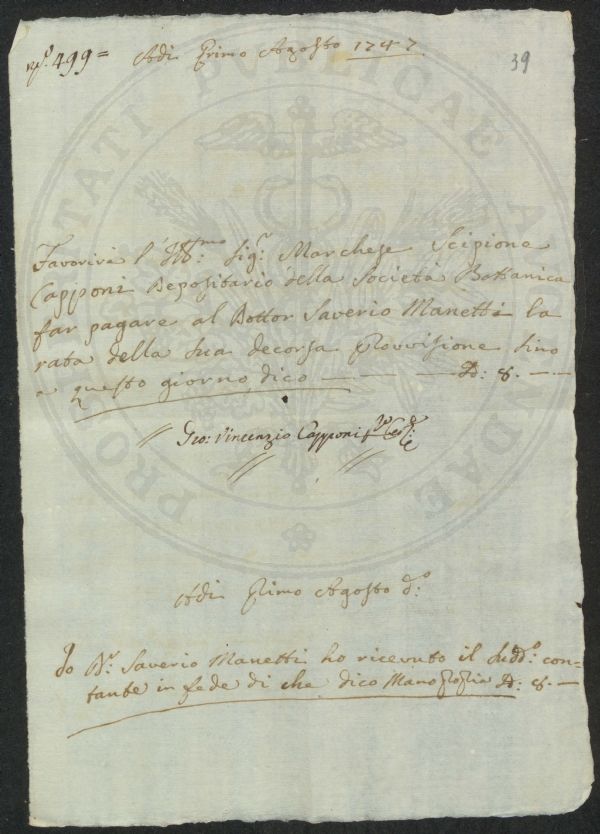 N.º 499 =
Adi Primo Agosto 1747
39
Favorirà l'Ill.mo Sig.r Marchese Scipione
Capponi Depositario della Società Bottanica
far pagare al Dottor Saverio Manetti la
rata della sua decorsa Provvisione sino
a questo giorno, dico — D: 8. —
Gio: Vincenzio Capponi
Adi Primo Agosto d.º
Io D.r Saverio Manetti ho ricevuto il sudd.º con=
tante in fede di che dico Mano Propria D: 8. —
PROSPERITATI PUBLICAE AUGENDAE